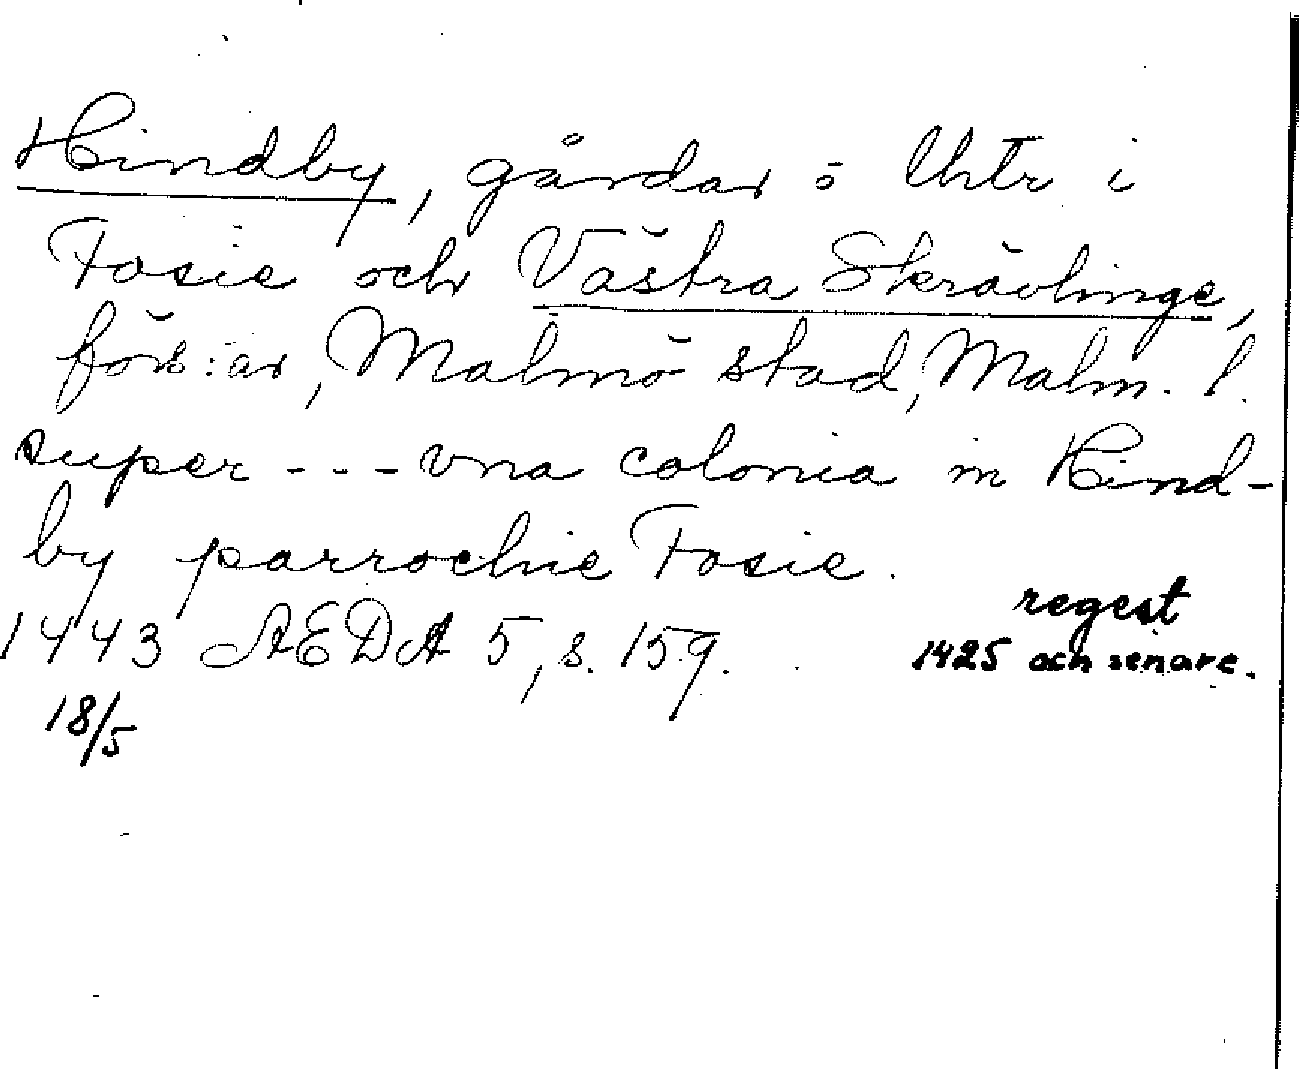 Hindby, gårdar o lhtr i
Fosie och Västra Skrävlinge,
förs:ar, Malmö stad, Malm. l.
super --- vna colonia in Hind-
by parrochie Fosie.
regest
1443 AEDA 5, s. 159. 1425 och senare.
18/5